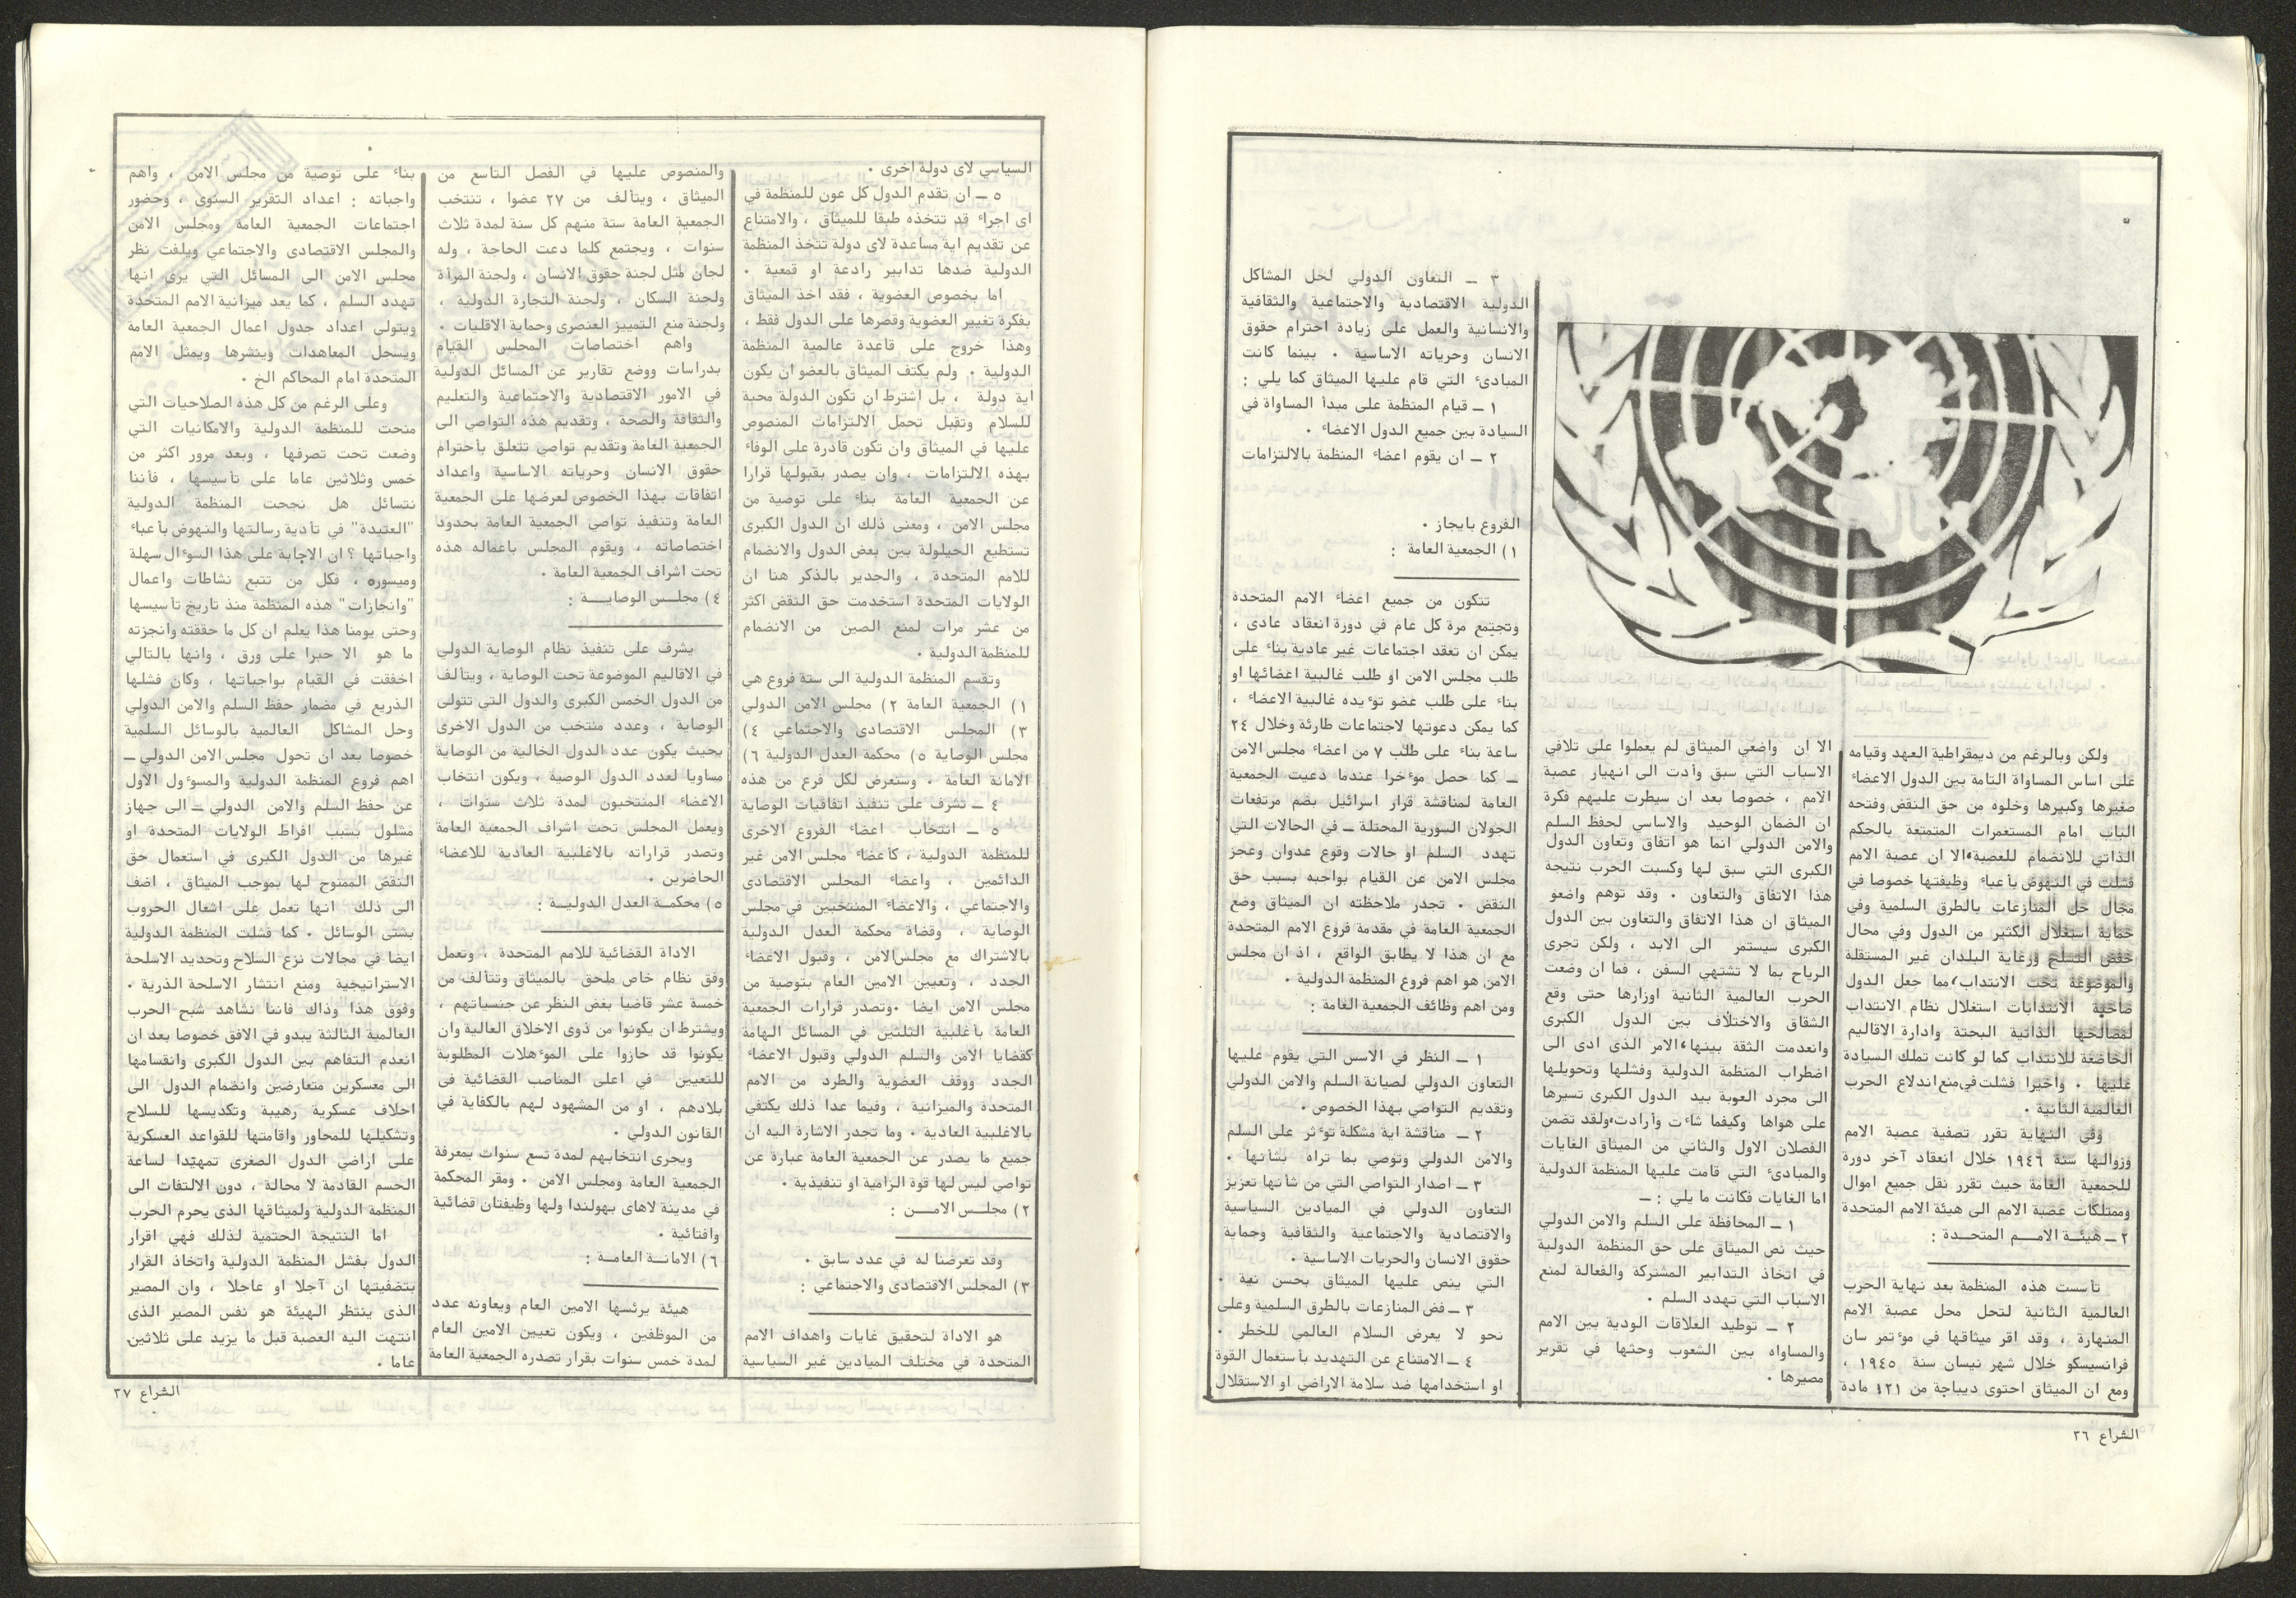 ولكن وبالرغم من ديمقراطية العهد وقيامه
على اساس المساواة التامة بين الدول الاعضاء
صغيرها وكبيرها وخلوه من حق النقض وفتحه
الباب امام المستعمرات المتمتعة بالحكم
الذاتي للانضمام للعصبة، الا ان عصبة الامم
فشلت في النهوض بأعباء وظيفتها خصوصا في
مجال حل المنازعات بالطرق السلمية وفي
حماية استغلال الكثير من الدول وفي مجال
خفض التسلح ورعاية البلدان غير المستقلة
والموضوعة تحت الانتداب، مما جعل الدول
صاحبة الانتدابات استغلال نظام الانتداب
لمصالحها الذاتية البحتة وادارة الاقاليم
الخاضعة للانتداب كما لو كانت تملك السيادة
عليها . واخيرا فشلت في منع اندلاع الحرب
العالمية الثانية .
وفي النهاية تقرر تصفية عصبة الامم
وزوالها سنة ١٩٤٦ خلال انعقاد آخر دورة
للجمعية العامة حيث تقرر نقل جميع اموال
وممتلكات عصبة الامم الى هيئة الامم المتحدة
٢ ــ هيئـة الامـم المتحـدة :
تأسست هذه المنظمة بعد نهاية الحرب
العالمية الثانية لتحل محل عصبة الامم
المنهارة ، وقد اقر ميثاقها في مؤتمر سان
فرانسيسكو خلال شهر نيسان سنة ١٩٤٥ ،
ومع ان الميثاق احتوى ديباجة من ٤٢١ مادة
الا ان واضعي الميثاق لم يعملوا على تلافي
الاسباب التي سبق وأدت الى انهيار عصبة
الامم ، خصوصا بعد ان سيطرت عليهم فكرة
ان الضمان الوحيد والاساسي لحفظ السلم
والامن الدولي انما هو اتفاق وتعاون الدول
الكبرى التي سبق لها وكسبت الحرب نتيجة
هذا الاتفاق والتعاون . وقد توهم واضعو
الميثاق ان هذا الاتفاق والتعاون بين الدول
الكبرى سيستمر الى الابد ، ولكن تجرى
الرياح بما لا تشتهي السفن ، فما ان وضعت
الحرب العالمية الثانية اوزارها حتى وقع
الشقاق والاختلاف بين الدول الكبرى
وانعدمت الثقة بينها، الامر الذى ادى الى
اضطراب المنظمة الدولية وفشلها وتحويلها
الى مجرد العوبة بيد الدول الكبرى تسيرها
على هواها وكيفما شاءت وأرادت، ولقد تضمن
الفصلان الاول والثاني من الميثاق الغايات
والمبادئ التي قامت عليها المنظمة الدولية
اما الغايات فكانت ما يلي : ــ
١ ــ المحافظة على السلم والامن الدولي
حيث نص الميثاق على حق المنظمة الدولية
في اتخاذ التدابير المشتركة والفعالة لمنع
الاسباب التي تهدد السلم .
٢ ــ توطيد العلاقات الودية بين الامم
والمساواه بين الشعوب وحثها في تقرير
مصيرها .
٣ ــ التعاون الدولي لحل المشاكل
الدولية الاقتصادية والاجتماعية والثقافية
والانسانية والعمل على زيادة احترام حقوق
الانسان وحرياته الاساسية . بينما كانت
المبادئ التي قام عليها الميثاق كما يلي :
١ ــ قيام المنظمة على مبدأ المساواة في
السيادة بين جميع الدول الاعضاء .
٢ ــ ان يقوم اعضاء المنظمة بالالتزامات
الفروع بايجاز .
١) الجمعية العامة :
تتكون من جميع اعضاء الامم المتحدة
وتجتمع مرة كل عام في دورة انعقاد عادى ،
يمكن ان تعقد اجتماعات غير عادية بناء على
طلب مجلس الامن او طلب غالبية اعضائها او
بناء على طلب عضو تؤيده غالبية الاعضاء ،
كما يمكن دعوتها لاجتماعات طارئة وخلال ٢٤
ساعة بناء على طلب ٧ من اعضاء مجلس الامن
ــ كما حصل مؤخرا عندما دعيت الجمعية
العامة لمناقشة قرار اسرائيل بضم مرتفعات
الجولان السورية المحتلة ــ في الحالات التي
تهدد السلم او حالات وقوع عدوان وعجز
مجلس الامن عن القيام بواجبه بسبب حق
النقض . تجدر ملاحظته ان الميثاق وضع
الجمعية العامة في مقدمة فروع الامم المتحدة
مع ان هذا لا يطابق الواقع ، اذ ان مجلس
الامن هو اهم فروع المنظمة الدولية .
ومن اهم وظائف الجمعية العامة :
١ ــ النظر في الاسس التي يقوم عليها
التعاون الدولي لصيانة السلم والامن الدولي
وتقديم التواصي بهذا الخصوص .
٢ ــ مناقشة اية مشكلة تؤثر على السلم
والامن الدولي وتوصي بما تراه بشأنها .
٣ ــ اصدار التواصي التي من شأنها تعزيز
التعاون الدولي في الميادين السياسية
والاقتصادية والاجتماعية والثقافية وحماية
حقوق الانسان والحريات الاساسية .
التي ينص عليها الميثاق بحسن نية .
٣ ــ فض المنازعات بالطرق السلمية وعلى
نحو لا يعرض السلام العالمي للخطر .
٤ ــ الامتناع عن التهديد بأستعمال القوة
او استخدامها ضد سلامة الاراضي او الاستقلال
الشراع ٣٦
السياسي لاى دولة اخرى .
٥ ــ ان تقدم الدول كل عون للمنظمة في
اى اجراء قد تتخذه طبقا للميثاق ، والامتناع
عن تقديم اية مساعدة لاى دولة تتخذ المنظمة
الدولية ضدها تدابير رادعة او قمعية .
اما بخصوص العضوية ، فقد اخذ الميثاق
بفكرة تغيير العضوية وقصرها على الدول فقط ،
وهذا خروج على قاعدة عالمية المنظمة
الدولية . ولم يكتف الميثاق بالعضو ان يكون
اية دولة ، بل اشترط ان تكون الدولة محبة
للسلام وتقبل تحمل الالتزامات المنصوص
عليها في الميثاق وان تكون قادرة على الوفاء
بهذه الالتزامات ، وان يصدر بقبولها قرارا
عن الجمعية العامة بناء على توصية من
مجلس الامن ، ومعنى ذلك ان الدول الكبرى
تستطيع الحيلولة بين بعض الدول والانضمام
للامم المتحدة ، والجدير بالذكر هنا ان
الولايات المتحدة استخدمت حق النقض اكثر
من عشر مرات لمنع الصين من الانضمام
للمنظمة الدولية .
وتقسم المنظمة الدولية الى ستة فروع هي
١) الجمعية العامة ٢) مجلس الامن الدولي
٣) المجلس الاقتصادى والاجتماعي ٤)
مجلس الوصاية ٥) محكمة العدل الدولية ٦)
الامانة العامة . وسنعرض لكل فرع من هذه
٤ ــ تشرف على تنفيذ اتفاقيات الوصاية
٥ ــ انتخاب اعضاء الفروع الاخرى
للمنظمة الدولية ، كأعضاء مجلس الامن غير
الدائمين ، واعضاء المجلس الاقتصادى
والاجتماعي ، والاعضاء المنتخبين في مجلس
الوصاية ، وقضاة محكمة العدل الدولية
بالاشتراك مع مجلس الامن ، وقبول الاعضاء
الجدد ، وتعيين الامين العام بتوصية من
مجلس الامن ايضا . وتصدر قرارات الجمعية
العامة بأغلبية الثلثين في المسائل الهامة
كقضايا الامن والسلم الدولي وقبول الاعضاء
الجدد ووقف العضوية والطرد من الامم
المتحدة والميزانية ، وفيما عدا ذلك يكتفي
بالاغلبية العادية . وما تجدر الاشارة اليه ان
جميع ما يصدر عن الجمعية العامة عبارة عن
تواصي ليس لها قوة الزامية او تنفيذية .
٢) مجلـس الامـن :
وقد تعرضنا له في عدد سابق .
٣) المجلس الاقتصادى والاجتماعي :
هو الاداة لتحقيق غايات واهداف الامم
المتحدة في مختلف الميادين غير السياسية
والمنصوص عليها في الفصل التاسع من
الميثاق ، ويتألف من ٢٧ عضوا ، تنتخب
الجمعية العامة ستة منهم كل سنة لمدة ثلاث
سنوات ، ويجتمع كلما دعت الحاجة ، وله
لجان مثل لجنة حقوق الانسان ، ولجنة المرأة
ولجنة السكان ، ولجنة التجارة الدولية ،
ولجنة منع التمييز العنصرى وحماية الاقليات .
واهم اختصاصات المجلس القيام
بدراسات ووضع تقارير عن المسائل الدولية
في الامور الاقتصادية والاجتماعية والتعليم
والثقافة والصحة ، وتقديم هذه التواصي الى
الجمعية العامة وتقديم تواصي تتعلق بأحترام
حقوق الانسان وحرياته الاساسية واعداد
اتفاقات بهذا الخصوص لعرضها على الجمعية
العامة وتنفيذ تواصي الجمعية العامة بحدود
اختصاصاته ، ويقوم المجلس باعماله هذه
تحت اشراف الجمعية العامة .
٤) مجلـس الوصايـة :
يشرف على تنفيذ نظام الوصاية الدولي
في الاقاليم الموضوعة تحت الوصاية ، ويتألف
من الدول الخمس الكبرى والدول التي تتولى
الوصاية ، وعدد منتخب من الدول الاخرى
بحيث يكون عدد الدول الخالية من الوصاية
مساويا لعدد الدول الوصية ، ويكون انتخاب
الاعضاء المنتخبون لمدة ثلاث سنوات ،
ويعمل المجلس تحت اشراف الجمعية العامة
وتصدر قراراته بالاغلبية العادية للاعضاء
الحاضرين .
٥) محكمـة العدل الدوليـة :
الاداة القضائية للامم المتحدة ، وتعمل
وفق نظام خاص ملحق بالميثاق وتتألف من
خمسة عشر قاضيا بغض النظر عن جنسياتهم ،
ويشترط ان يكونوا من ذوى الاخلاق العالية وان
يكونوا قد حازوا على المؤهلات المطلوبة
للتعيين في اعلى المناصب القضائية في
بلادهم ، او من المشهود لهم بالكفاية في
القانون الدولي .
ويجرى انتخابهم لمدة تسع سنوات بمعرفة
الجمعية العامة ومجلس الامن . ومقر المحكمة
في مدينة لاهاى بهولندا ولها وظيفتان قضائية
وافتائية .
٦) الامانـة العامـة :
هيئة يرئسها الامين العام ويعاونه عدد
من الموظفين ، ويكون تعيين الامين العام
لمدة خمس سنوات بقرار تصدره الجمعية العامة
بناء على توصية من مجلس الامن ، واهم
واجباته : اعداد التقرير السنوى ، وحضور
اجتماعات الجمعية العامة ومجلس الامن
والمجلس الاقتصادى والاجتماعي ويلفت نظر
مجلس الامن الى المسائل التي يرى انها
تهدد السلم ، كما يعد ميزانية الامم المتحدة
ويتولى اعداد جدول اعمال الجمعية العامة
ويسجل المعاهدات وينشرها ويمثل الامم
المتحدة امام المحاكم الخ .
وعلى الرغم من كل هذه الصلاحيات التي
منحت للمنظمة الدولية والامكانيات التي
وضعت تحت تصرفها ، وبعد مرور اكثر من
خمس وثلاثين عاما على تأسيسها ، فأننا
نتسائل هل نجحت المنظمة الدولية
"العتيدة" في تأدية رسالتها والنهوض بأعباء
واجباتها ؟ ان الاجابة على هذا السؤال سهلة
وميسوره ، فكل من تتبع نشاطات واعمال
"وانجازات" هذه المنظمة منذ تاريخ تأسيسها
وحتى يومنا هذا يعلم ان كل ما حققته وانجزته
ما هو الا حبرا على ورق ، وانها بالتالي
اخفقت في القيام بواجباتها ، وكان فشلها
الذريع في مضمار حفظ السلم والامن الدولي
وحل المشاكل العالمية بالوسائل السلمية
خصوصا بعد ان تحول مجلس الامن الدولي ــ
اهم فروع المنظمة الدولية والمسؤول الاول
عن حفظ السلم والامن الدولي ــ الى جهاز
مشلول بسبب افراط الولايات المتحدة او
غيرها من الدول الكبرى في استعمال حق
النقض الممنوح لها بموجب الميثاق ، اضف
الى ذلك انها تعمل على اشعال الحروب
بشتى الوسائل . كما فشلت المنظمة الدولية
ايضا في مجالات نزع السلاح وتحديد الاسلحة
الاستراتيجية ومنع انتشار الاسلحة الذرية .
وفوق هذا وذاك فاننا نشاهد شبح الحرب
العالمية الثالثة يبدو في الافق خصوصا بعد ان
انعدم التفاهم بين الدول الكبرى وانقسامها
الى معسكرين متعارضين وانضمام الدول الى
احلاف عسكرية رهيبة وتكديسها للسلاح
وتشكيلها للمحاور واقامتها للقواعد العسكرية
على اراضي الدول الصغرى تمهيدا لساعة
الحسم القادمة لا محالة ، دون الالتفات الى
المنظمة الدولية ولميثاقها الذى يحرم الحرب
اما النتيجة الحتمية لذلك فهي اقرار
الدول بفشل المنظمة الدولية واتخاذ القرار
بتصفيتها ان آجلا او عاجلا ، وان المصير
الذى ينتظر الهيئة هو نفس المصير الذى
انتهت اليه العصبة قبل ما يزيد على ثلاثين
عاما .
الشراع ٣٧